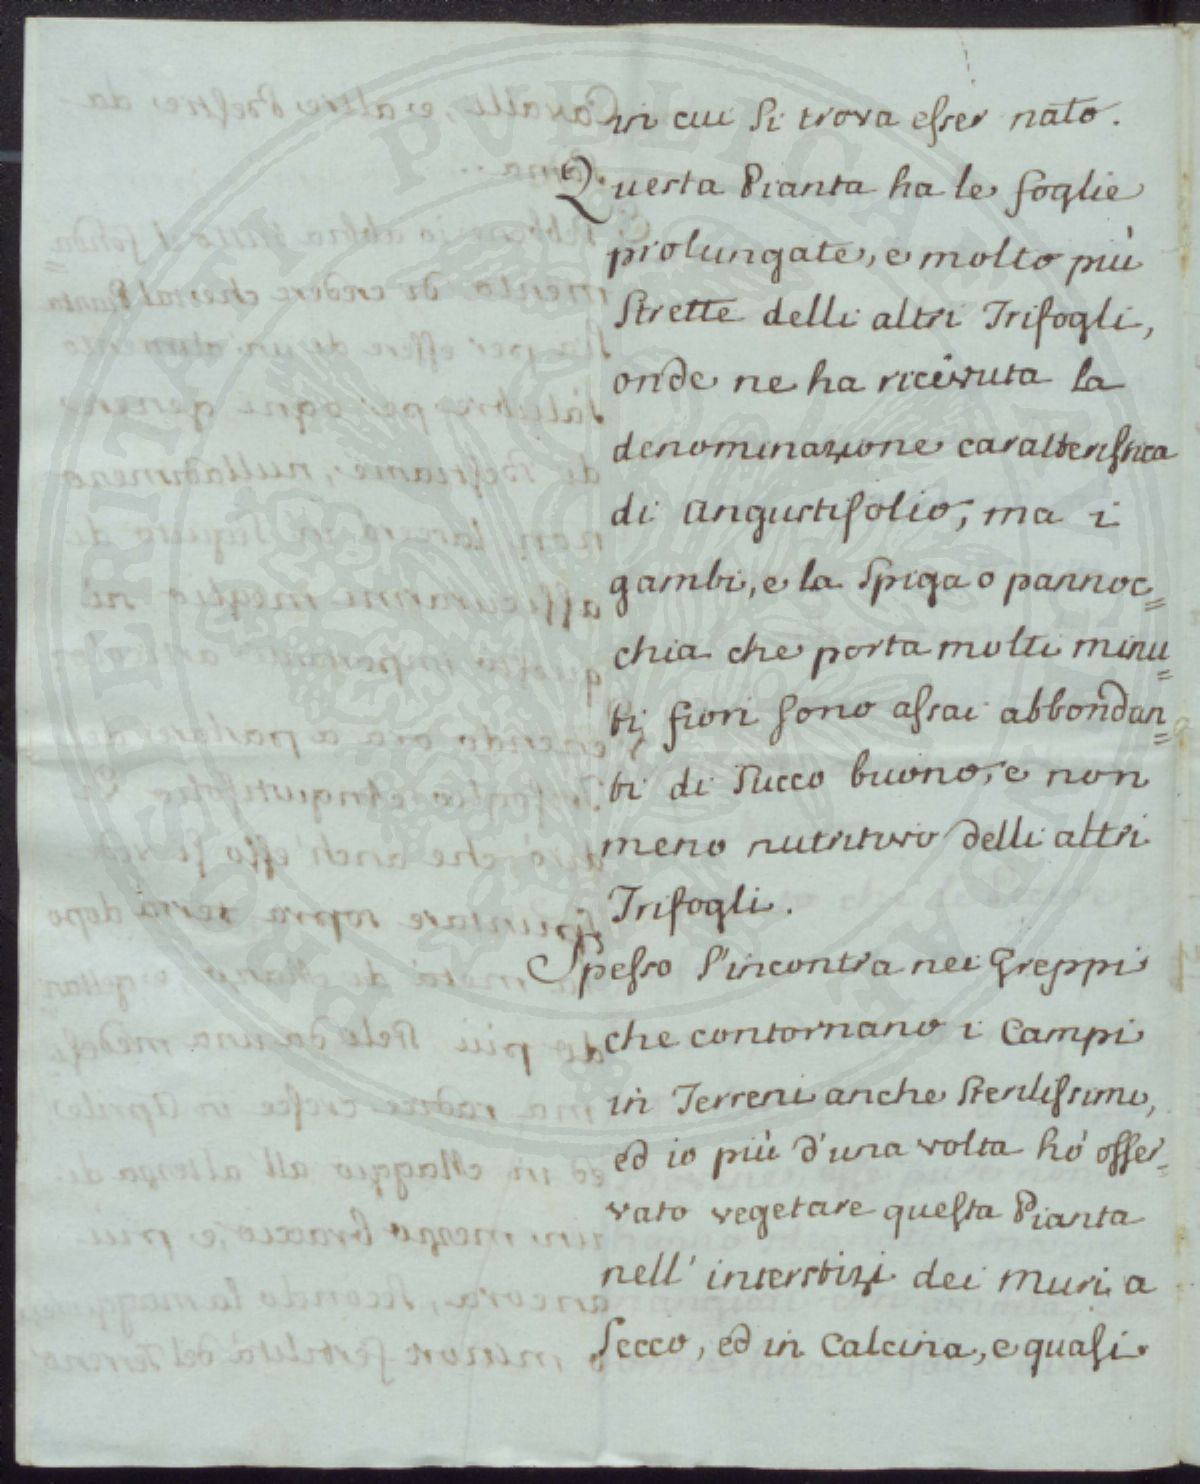 in cui si trova esser nato.
Questa Pianta ha le foglie
prolungate, e molto più
strette delli altri Trifogli,
onde ne ha ricevuta la
denominazione caratteristica
di angustifolio, ma i
gambi, e la spiga o pannoc=
chia che porta molti minu=
ti fiori sono assai abbondan=
ti di succo buono, e non
meno nutritivo delli altri
Trifogli.
Spesso s'incontra nei Greppi
che contornano i Campi
in Terreni anche sterilissimi,
ed io più d'una volta hò osser=
vato vegetare questa Pianta
nell' interstizi dei muri a
secco, ed in Calcina, e quasi